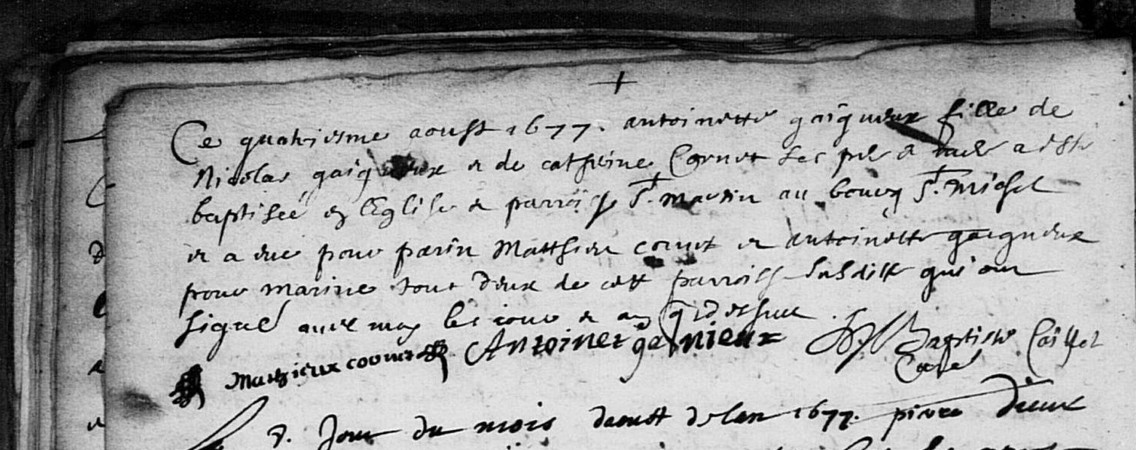 Ce quatriesme aoust 1677. antoinette gaigneux fille de
Nicolas gaigneux et de catherine Cornet ses per et mere a esté
baptisée en l'Eglise et parroisse St. Martin au bourg St. Michel
et a eue pour parin Matthieu cornet et antoinette gaigneux
pour marine tout deux de cette parroisse susditte qui ont
signé avec moy les jour et an qu'dessus
Mathieux cornet Antoinet gainieux Baptiste Caillot
Curé
Jour du mois daoust de lan 1677. pierre